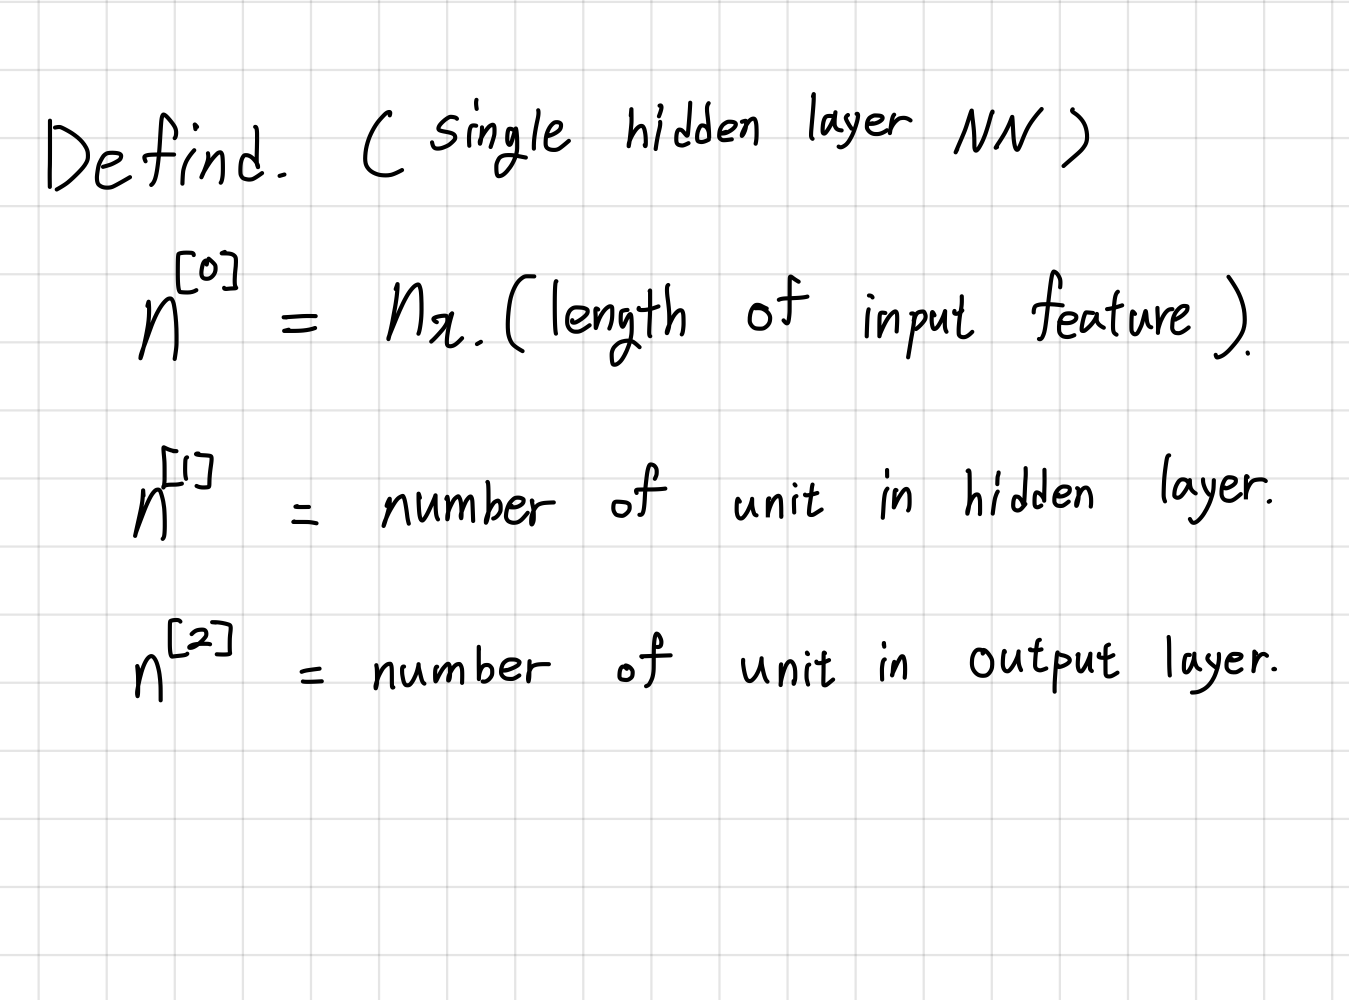 Defind. (single hidden layer NN)
n^[0] = nx. (length of input feature).
n^[1] = number of unit in hidden layer.
n^[2] = number of unit in output layer.